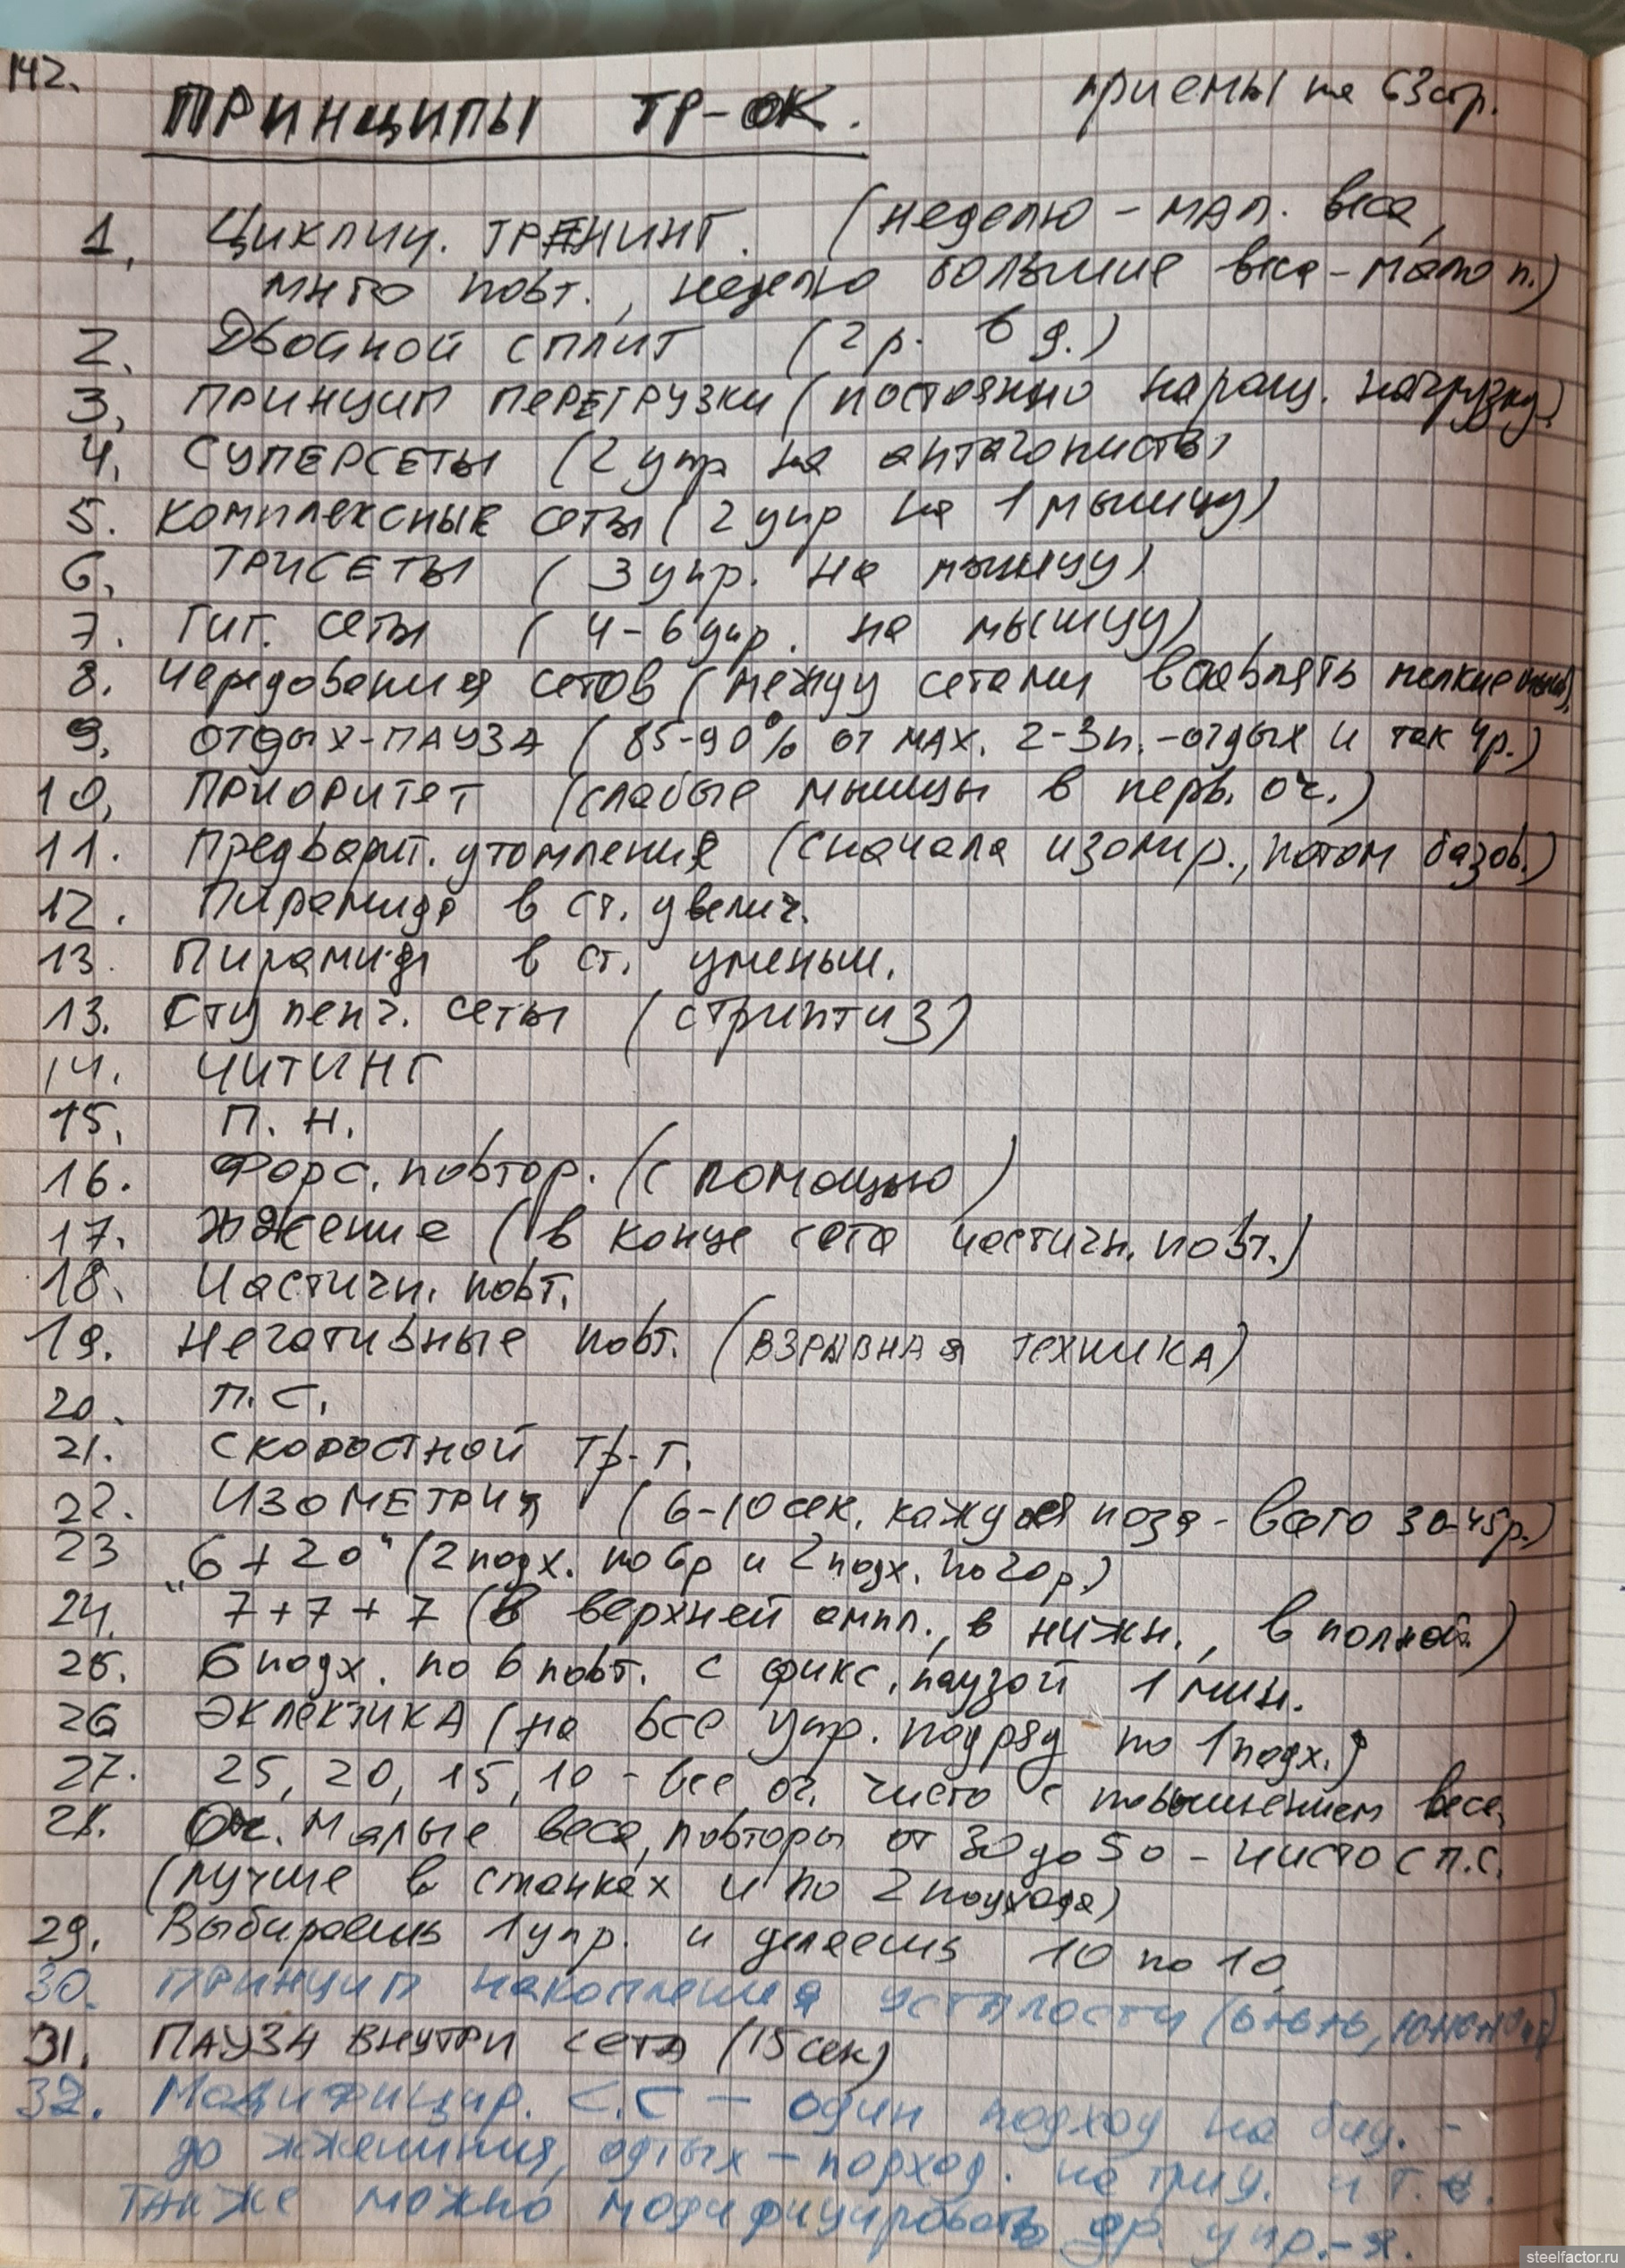 142.
ПРИНЦИПЫ ТР-ОК.
приемы на 63 стр.
1. Циклич. ТРЕНИНГ. (неделю - мал. веса,
много повт., неделю большие веса - мало п.)
2. Двойной сплит (2 р. в д.)
3. ПРИНЦИП ПЕРЕГРУЗКИ (постоянно наращ. нагрузку)
4. СУПЕРСЕТЫ (2 упр на антагонисты)
5. Комплексные сеты (2 упр на 1 мышцу)
6. ТРИСЕТЫ (3 упр. на мышцу)
7. Гиг. сеты (4-6 упр. на мышцу)
8. Чередования сетов (между сетами вставлять мелкие
9. ОТДЫХ-ПАУЗА (85-90% от мах. 2-3 п. - отдых и так 4 р.)
10. Приоритет (слабые мышцы в перв. оч.)
11. Предварит. утомления (сначала изолир., потом базов.)
12. Пирамида в ст. увелич.
13. Пирамида в ст. уменьш.
13. Ступенч. сеты (стриптиз)
14. ЧИТИНГ
15. П. Н.
16. Форс. повтор. (с помощью)
17. Жжение (в конце сета частичн. повт.)
18. Частичн. повт.
19. Негативные повт. (ВЗРЫВНАЯ ТЕХНИКА)
20. П.С.
21. Скоростной тр-г.
22. ИЗОМЕТРИЯ (6-10 сек. каждая поза - всего 30-45 р.)
23 "6 + 20" (2 подх. по 6 р и 2 подх. по 20 р.)
24. 7 + 7 + 7 (В верхней ампл., в нижн., в полной.)
25. 6 подх. по 6 повт. с фикс. паузой 1 мин.
26 ЭКЛЕКТИКА (на все упр. подряд по 1 подх.)
27. 25, 20, 15, 10 - все оч. чисто с повышением веса.
28. Оч. Малые веса, повторы от 30 до 50 - чисто с П.С.
(лучше в станках и по 2 подхода)
29. Выбираешь 1 упр. и делаешь 10 по 10.
30. ПРИНЦИП накопления усталости
31. ПАУЗА ВНУТРИ сета (15 сек)
32. Модифицир. С.С - один подход на биц. -
до жжения, отдых - подход. на триц. и т.д.
ТАКЖЕ можно модифицировать др. упр.-я.
steelfactor.ru